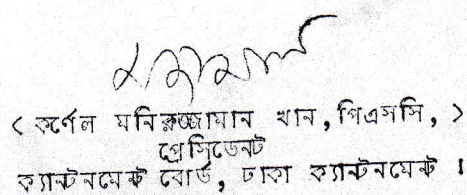 < কর্ণেল মনিরুজ্জামান খান, পিএসসি, >
প্রেসিডেন্ট
ক্যান্টনমেন্ট বোর্ড, ঢাকা ক্যান্টনমেন্ট ।